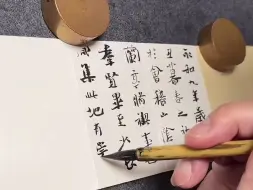 永和九年歲
丑暮春之
於會稽山陰
蘭亭脩禊事
羣賢畢至少長
咸集此地有崇